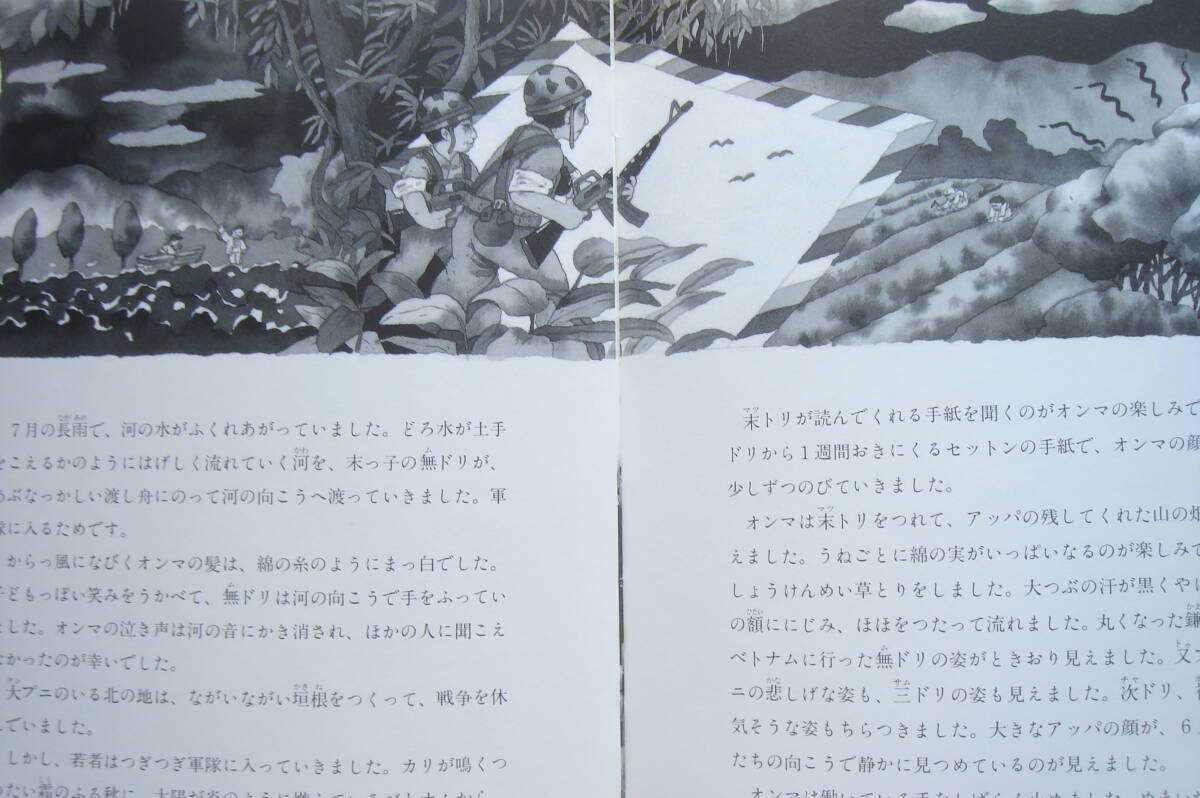 7月の長雨で、河の水がふくれあがっていました。どろ水が土手
をこえるかのようにはげしく流れていく河を、末っ子の無ドリが、
あぶなっかしい渡し舟にのって河の向こうへ渡っていきました。軍
隊に入るためです。
からっ風になびくオンマの髪は、綿の糸のようにまっ白でした。
子どもっぽい笑みをうかべて、無ドリは河の向こうで手をふってい
ました。オンマの泣き声は河の音にかき消され、ほかの人に聞こえ
なかったのが幸いでした。
大プニのいる北の地は、ながいながい垣根をつくって、戦争を休
していました。
しかし、若者はつぎつぎ軍隊に入っていきました。カリが鳴くつ
めたい霜のふる秋に、太陽が炎のように燃えているベトナムから、
末トリが読んでくれる手紙を聞くのがオンマの楽しみで
ドリから1週間おきにくるセットンの手紙で、オンマの顔
少しずつのびていきました。
オンマは末トリをつれて、アッパの残してくれた山の畑
えました。うねごとに綿の実がいっぱいなるのが楽しみで
しょうけんめい草とりをしました。大つぶの汗が黒くやけ
の額ににじみ、ほほをつたって流れました。丸くなった鎌
ベトナムに行った無ドリの姿がときおり見えました。又プ
ニの悲しげな姿も、三ドリの姿も見えました。次ドリ、
気そうな姿もちらつきました。大きなアッパの顔が、6人
たちの向こうで静かに見つめているのが見えました。
オンマは働いている手をしばらく止めました。